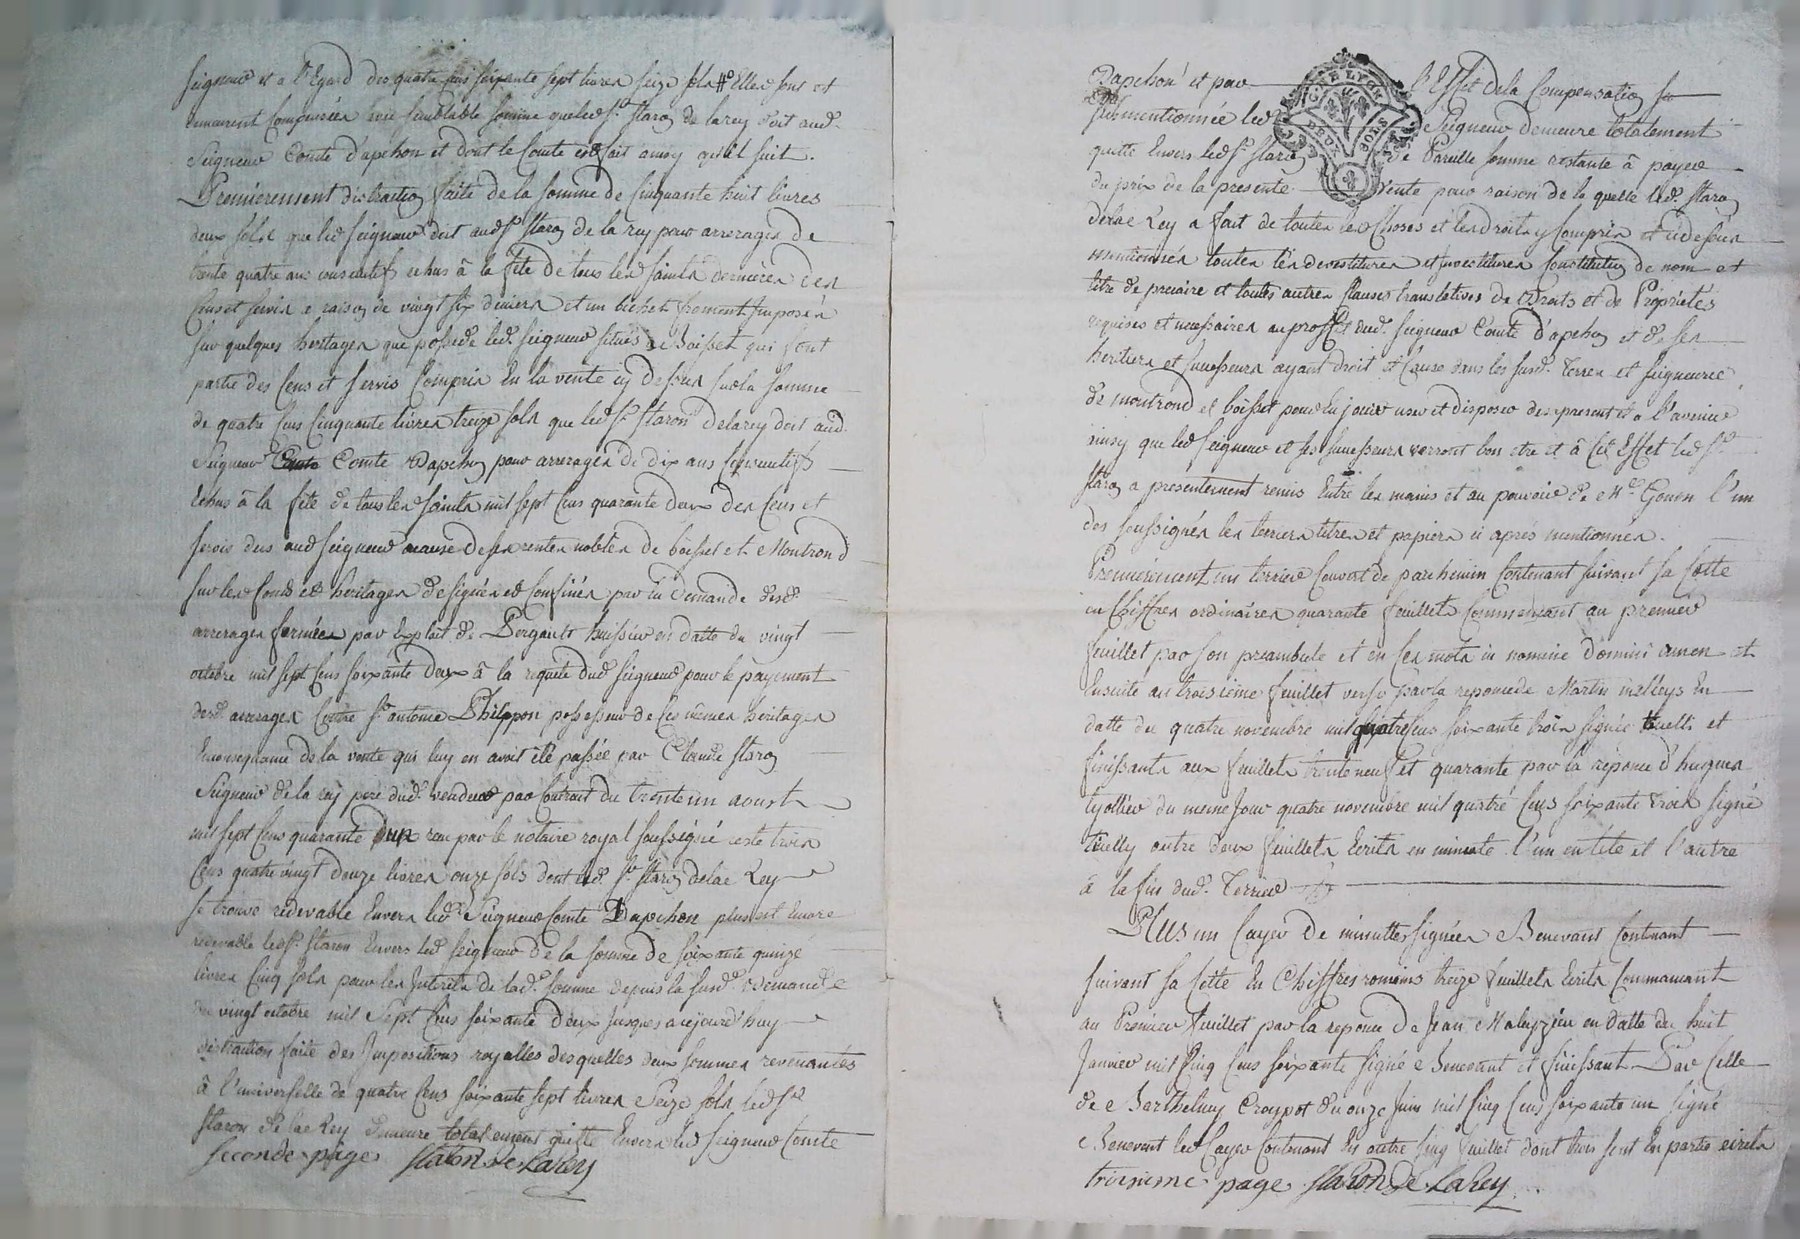 Seigneur et a l'Egard des quatre cens soixante sept livres seize sols Elles sont et
demeurent Compensées avec semblable somme que led Sr. Staron de larey doit aud.
Seigneur Comte d'apchon et dont le Compte est fait ainsy qu'il suit.
Premierement distraction faite de la somme de cinquante huit livres
deux sols que led seigneur doit aud Sr Staron de la rey pour arrerages de
trente quatre ans consecutifs echus à la fête de tous les saints derniere des
Cens et servis a raison de vingt six deniers et un bichet froment Imposés
sur quelques heritages que possede led. seigneur situés a Boisset qui font
partie des Cens et servis Compris en la vente cy dessus sur la somme
de quatre Cens Cinquante livres treize sols que led Sr. Staron delarey doit aud.
Seigneur Comte Dapchon pour arrerages de dix ans consecutifs
Echus à la fête de tous les saints mil sept Cens quarante deux des Cens et
servis dus aud seigneur acause de ses rentes nobles de boisset et Montrond
sur les fonds et heritages designés et Confinés par la demande desd
arrerages formée par Exploit de Dergault huissier en datte du vingt
octobre mil sept Cens soixante deux à la requête dud seigneur pour le payement
desd. arrerages Contre Sr. antoine Philippon possesseur de ces mêmes heritages
En consequence de la vente qui luy en avoit été passée par Claude Staron
Seigneur de la rey pere dud. vendeur par Contrat du trente un aoust
mil sept Cens quarante deux reçu par le notaire royal soussigné reste trois
Cens quatre vingt douze livres onze sols dont led. Sr. Staron delae Rey
se trouve redevable Envers led. Seigneur Comte Dapchon plus est Encore
redevable led Sr. Staron Envers led seigneur de la somme de soixante quinze
livres Cinq sols pour les Interets de lad. somme depuis la susd. demande
du vingt octobre mil Sept Cens soixante deux Jusques aujourd'huy
distraction faite des Impositions royalles desquelles deux sommes revenantes
à l'universelle de quatre Cens soixante sept livres Seize sols led Sr
Staron delae Rey demeure totalement quitte Envers led seigneur Comte
seconde page Staron de LaRey
Dapchon et par l'Effet de la Compensation su
susmentionnée led Seigneur demeure totalement
quitte Envers led Sr Staron de Pareille somme restante à payer
du prix de la presente Vente pour raison de la quelle led. Staron
delae Rey a fait de toutes les Choses et les droits y Compris et cy dessus
mentionnés toutes les devestitures et investitures Constitution de nom et
titre de precaire et toutes autres Clauses translatives de Droits et de Proprietés
requises et necessaires au proffit dud. seigneur Comte d'apchon et de ses
heritiers et successeurs ayant droit et Cause dans les susd. Terres et seigneurie
de montrond et boisset pour En jouir user et disposer des present et a l'avenir
ainsy que led seigneur et ses successeurs verront bon etre et à Cet Effet led Sr.
Staron a presentement remis Entre les mains et au pouvoir de Me Gonon l'un
des soussignés les terriers titres et papiers ci après mentionnés.
Premierement un terrier Couvert de parchemin Contenant suivant sa Cotte
en Chiffres ordinaires quarante feuillets Commencant au premier
feuillet par son preambule et en ces mots in nomine domini amen et
Ensuite au troisième feuillet verso par la reponce de Martin En
datte du quatre novembre mil quatre Cens soixante trois signée tuelli et
finissants aux feuillets trente neuf et quarante par la réponce d'hugues
tyollier du meme Jour quatre novembre mil quatre Cens soixante trois signé
tuelly outre deux feuillets Ecrits en minute l'un en tête et l'autre
à la fin dud. Terrier
PLUS un Cayer de minuttes signées Benevant Contenant
suivant sa Cotte En Chiffres romains treize feuillets Ecrits Commancant
au Premier feuillet par la reponce de Jean Maluzieu en datte du huit
Janvier mil Cinq Cens soixante signé Benevant et finissant Par Celle
de Barthelmy Croypot du onze Juin mil Cinq Cens soixante un signé
Benevent led Cayer Contenant En outre Cinq feuillet dont trois sont En partie ecrits
troisieme page Staron de LaRey